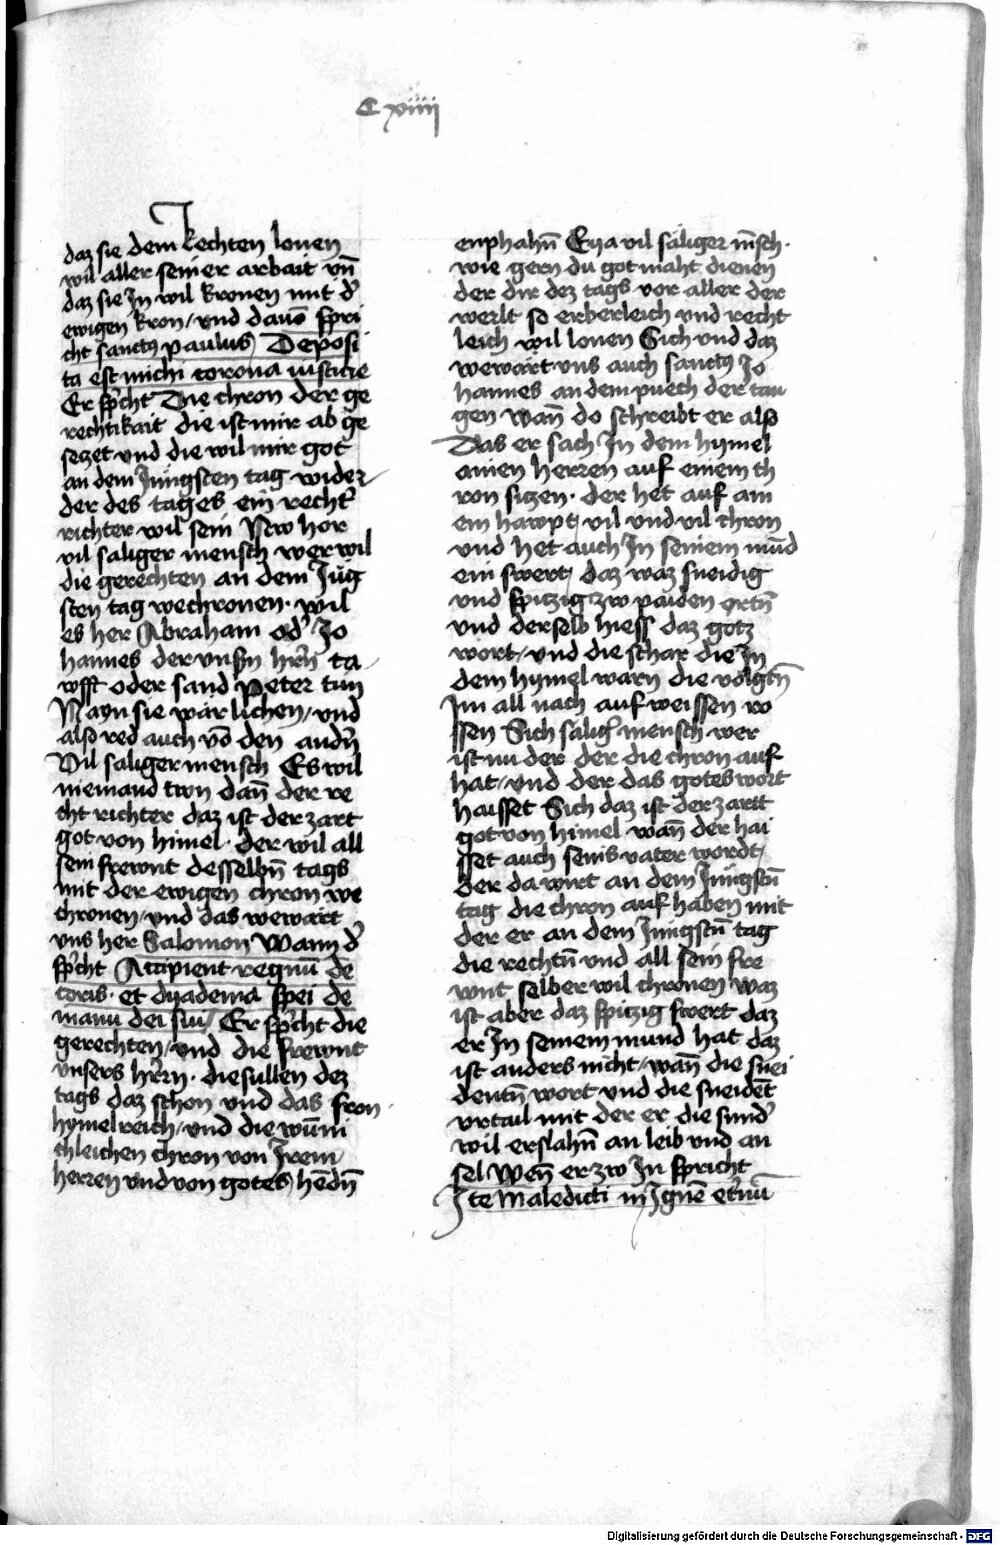 C xviiij
daz sie dem kechten lonen
wil aller seiner arbait vn̄
daz sie Jn wil kronen mit d̕
ewigen kron / vnd dauō spri
cht sanctus paulus / Deposi
ta est michi corona iusticie
Er sp̄cht Die chron der ge
rechtikait die ist mir ab ge
seczet vnd die wil mir got
an dem Jungsten tag wider
der des tages ein recht̕
richter wil sein Now hor
vil saliger mensch wer wil
die gerechten an dem Jūg
sten tag wechronen · wil
es her Abraham od̕ Jo
hannes der vnsn̄ hr̄n̄ ta
wfft oder sand Peter tun
Nayn sie war lichen / vnd
also red auch vō den andn̄
Vil saliger mensch Es wil
niemand twn dan̄ der re
cht richter daz ist der zart
got von himel · der wil all
sein frewnt desselbn̄ tags
mit der ewigen chron we
chronen / vnd das wewart
vns her Salomon Wann d̕
sp̄cht Accipient regnū de
coris · et dyadema spei de
manu dei sui / Er sp̄cht die
gerechten / vnd die frewnt
vnsers hr̄rn · die sullen dez
tags daz schon vnd das fron
hymelreich / vnd die wūni
chleichen chron von Jrem
herren vnd von gotes hēdn̄
enphahn̄ Eya vil säliger m̄sch ·
wie gern du got maht dienen
der dir dez tags vor aller der
werlt so erberleich vnd recht
leich wil lonen Sich vnd daz
wewart vns auch sanctus Jo
hannes an dem puech der tau
gen wan̄ do schreibt er also
Das er sach Jn dem hymel
ainen herren auf einem th
ron siczen · der het auf am
em hawpt vil vnd vil chron
vnd het auch Jn seinem mūd
ein swert / daz waz sneidig
vnd spiczig zw paiden ortn̄
vnd derselb hiess daz gotz
wort / vnd die schar die Jn
dem hymel warn die volgtn̄
Jm all nach auf weissen ro
ssen Sich sälig̕ mensch wer
ist nu der der die chron auf
hat / vnd der das gotes wort
haisset Sich daz ist der zartt
got von himel wan̄ der hai
sset auch seins vater wordt /
der da wirt an dem Jungstn̄
tag die chron auf haben mit
der er an dem Jungstn̄ tag
die rechtn̄ vnd all sein fre
wnt selber wil chronen waz
ist aber daz spiczig swert daz
er Jn seinem mund hat daz
ist anders nicht / wan̄ die snei
dentn̄ wort vnd die sneidēt
vrtail mit der er die sund̕
wil erslahn̄ an leib vnd an
sel Wen̄ er zw Jn spricht
Jte Maledicti in Jgnē et̕nū
Digitalisierung gefördert durch die Deutsche Forschungsgemeinschaft - DFG